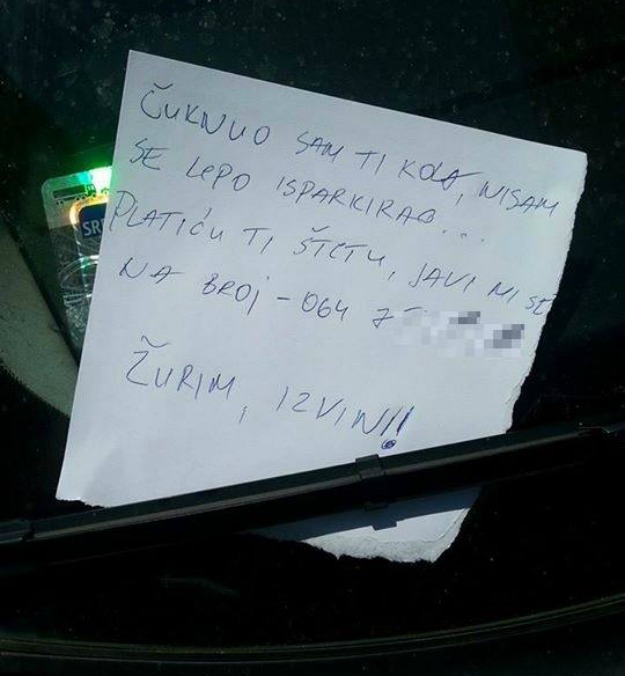 ČUKNUO SAM TI KOLA, NISAM
SE LEPO ISPARKIRAO...
PLATIĆU TI ŠTETU, JAVI MI SE
NA BROJ - 064 7
ŽURIM, IZVINI!
SR